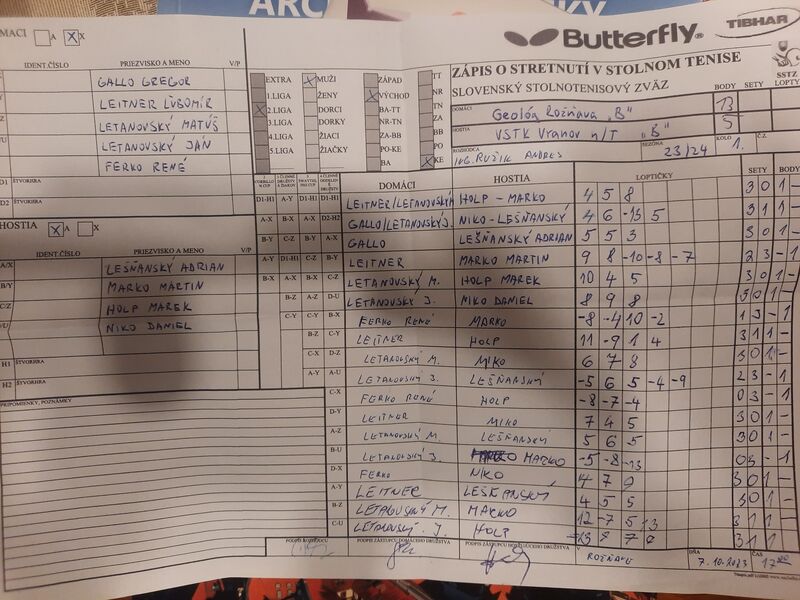 ARC
KY
MACI A X X
Butterfly
TIBHAR
SSTZ
IDENT.ČÍSLO PRIEZVISKO A MENO V/P
ZÁPIS O STRETNUTÍ V STOLNOM TENISE
SLOVENSKÝ STOLNOTENISOVÝ ZVÄZ
BODY SETY LOPTY
GALLO GREGOR
LEITNER ĽUBOMÍR
LETANOVSKÝ MATÚŠ
LETANOVSKÝ JÁN
FERKO RENÉ
EXTRA X MUŽI ZÁPAD TT
1.LIGA ŽENY X VÝCHOD NR
X 2.LIGA DORCI BA-TT TN
3.LIGA DORKY NR-TN ZA
4.LIGA ŽIACI ZA-BB BB
5.LIGA ŽIAČKY PO-KE PO
BA X KE
DOMÁCI Geológ Rožňava "B" 13
HOSTIA VSTK Vranov n/T "B" 5
ROZHODCA Ing. RUŽIK ANDREJ SEZÓNA 23/24 KOLO 1. Č.Z.
D1 ŠTVORHRA
D2
HOSTIA X A X
IDENT.ČÍSLO PRIEZVISKO A MENO V/P
A/X LEŠŇANSKÝ ADRIAN
B/Y MARKO MARTIN
C/Z HOLP MAREK
NIKO DANIEL
H1 ŠTVORHRA
H2
PRIPOMIENKY, POZNÁMKY
DOMÁCI HOSTIA LOPTIČKY SETY BODY
D1-H1 A-Y D1-H1 D1-H1 LEITNER/LETANOVSKÝ HOLP - MARKO 4 5 8 3 0 1 -
A-X B-X A-X D2-H2 GALLO/LETANOVSKÝ J. NIKO - LEŠŇANSKÝ 4 6 -13 5 3 1 1 -
B-Y C-Z B-Y A-X GALLO LEŠŇANSKÝ ADRIAN 5 5 3 3 0 1 -
A-Y D1-H1 C-Z B-Y LEITNER MARKO MARTIN 9 8 -10 -8 -7 2 3 - 1
B-X A-X B-X C-Z LETANOVSKÝ M. HOLP MAREK 10 4 5 3 0 1 -
B-Z A-Z D-U LETANOVSKÝ J. NIKO DANIEL 8 9 8 3 0 1 -
C-Y C-Y B-X FERKO RENÉ MARKO -8 -4 10 -2 1 3 - 1
B-Z C-Y LEITNER HOLP 11 -9 1 4 3 1 1 -
C-X D-Z LETANOVSKÝ M. NIKO 6 7 8 3 0 1 -
A-Y A-U LETANOVSKÝ J. LEŠŇANSKÝ -5 6 5 -4 -9 2 3 - 1
C-X FERKO RENÉ HOLP -8 -7 -4 0 3 - 1
D-Y LEITNER NIKO 7 4 5 3 0 1 -
A-Z LETANOVSKÝ M. LEŠŇANSKÝ 5 6 5 3 0 1 -
B-U LETANOVSKÝ J. MARKO -5 -8 -13 0 3 - 1
D-X FERKO NIKO 4 7 9 3 0 1 -
A-Y LEITNER LEŠŇANSKÝ 4 5 5 3 0 1 -
B-Z LETANOVSKÝ M. MARKO 12 -7 5 13 3 1 1
C-U LETANOVSKÝ J. HOLP 3 1 1
PODPIS ROZHODCU PODPIS ZÁSTUPCU DOMÁCEHO DRUŽSTVA PODPIS ZÁSTUPCU HOSŤUJÚCEHO DRUŽSTVA V ROŽŇAVE DŇA 7.10.2023 ČAS 17:00